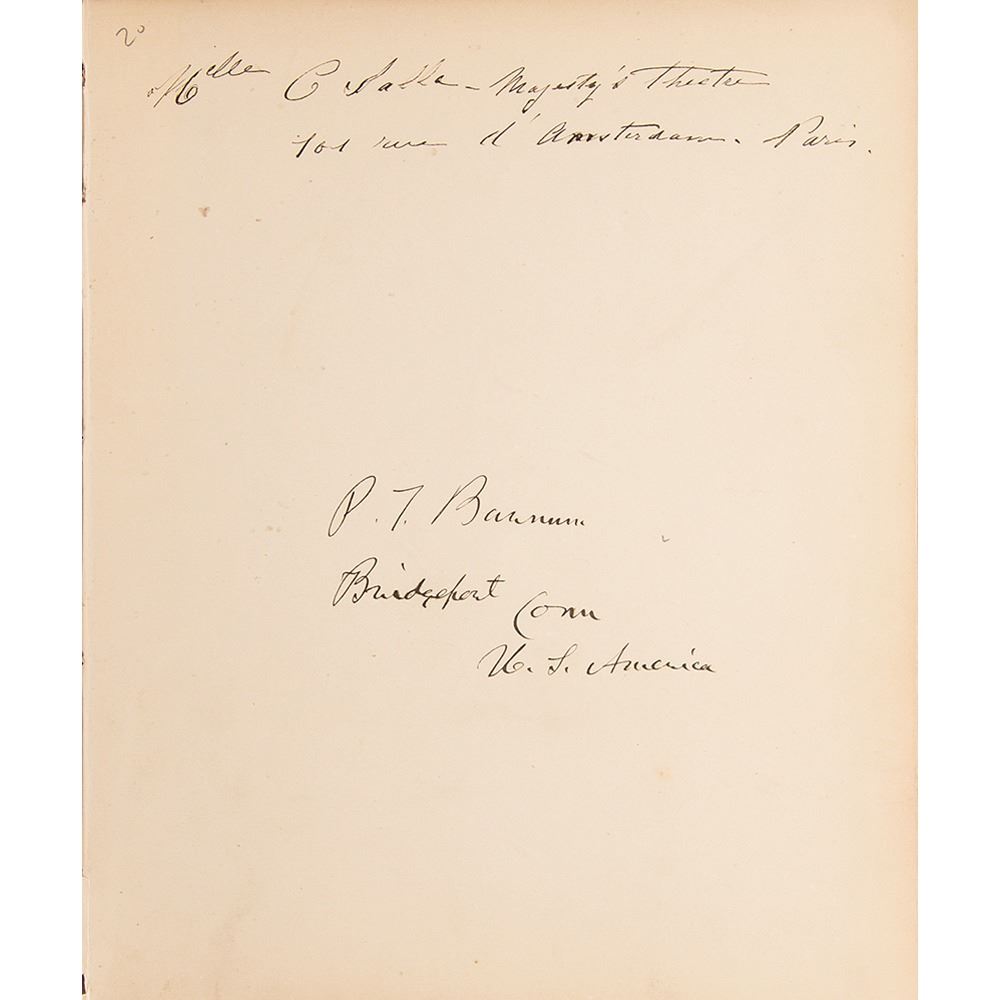 20
Melle C Salla - Majesty's Theatre
101 rue d'Amsterdam. Paris.
P. T. Barnum
Bridgeport Conn
U. S. America